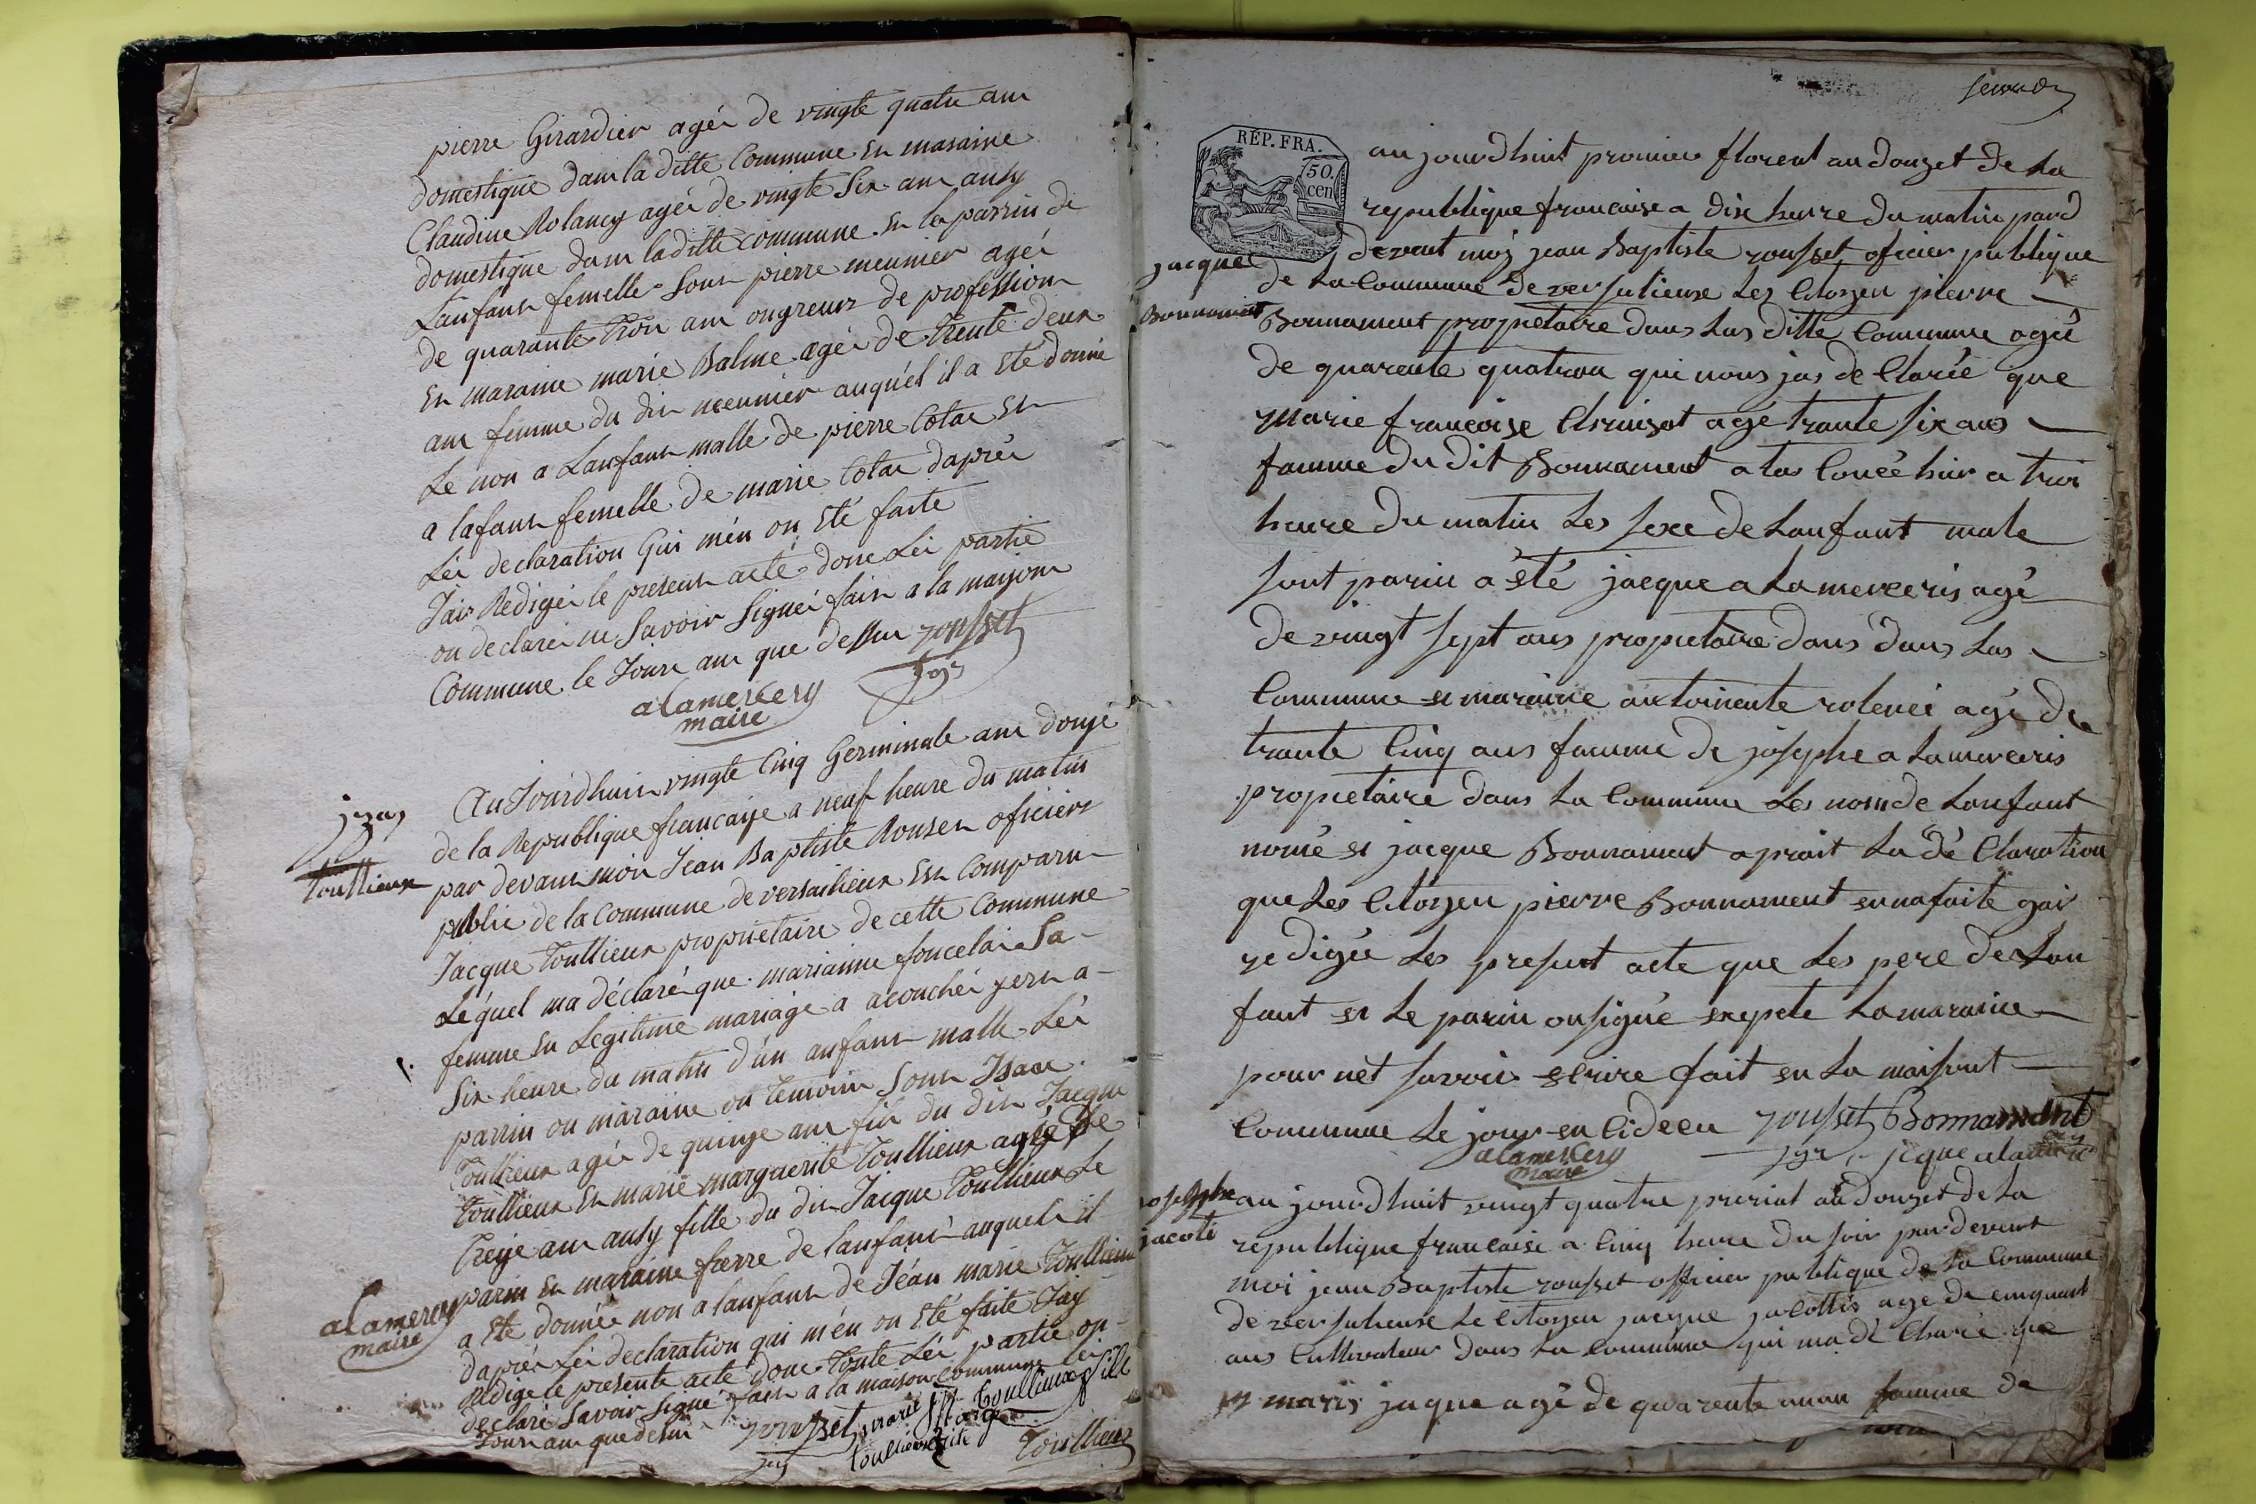 pierre Girardier agéi de vingte quatre am
domestique dam la ditte Commune En maraine
Claudine Rolancy agéi de vingte Six am ausy
domestique dam laditte commune. En le parrin de
Lanfann femelle Sonn pierre meunier agéi
de quarante Troi am ongreur de profession
En maraine marie Balme agéi de Trente deux
am femme du din meunier auquél il a Eté donné
Le non a Lanfann malle de pierre Cotar En
a lafann femelle de marie Cotar daprér
Léi declaration Qui m'én on Eté faite
Jair Redigéi le presenn acté donc Léi partie
on declaréi ne Savoir Signéi fain a la maijonn
Commune le Jourr am que dessu rousset
alamercery
maire
jean
toullieux
AuJourdhuin vingte Cinq Germinale ann douzé
de la Republique francaize a neuf heure du matin
par devann moi Jean Baptiste Rousen oficierr
public de la Commune de versailieux En Comparu
Jacque Toullieux proprietaire de cette Commune
Léquel ma déclaré que marianne foncelai Sa
femme En Legitime mariage a acouchéi yerr a
Six heure du matin d'un anfann malle Léi
parrin ou maraine ou temoin Sonn Isaac
Toullieux agéi de quinze am fils du din Jacque
Toullieux En marie marguerite Toullieux agée de
Treize am ausy fille du din Jacque Toullieux Le
parin En maraine frerre de lanfann auqueh il
a Eté donnée non a lanfann de Jéan marie Toullieux
dapréi Léi déclaration qui m'én on Eté faite Jay
Redige le presente acté donc Toute Léi partie on
declaré Savoir Signé fain a la maison Commune Léi
Jourr am que dessu rousset marie
toullieux fille
Toullieux
alamercery
maire
RÉP. FRA.
50.
cen
jacque
Bonnament
aujourdhuit promier floreal an douzet de La
republique francaise a dixe heure du matin pard
devent moy jean Baptiste rousset oficier publique
de La Commune de versulieuse Lez Citoyen pierre
Bonnament propietaire dans Las ditte Commune agée
de quarente quatrou qui nous jas de Clarée que
Marie francoise Chruizot agé trante six ans
famme du dit Bonnament a las Coucé hier a troi
heure du matin Les sexe de Lanfant male
sont parin a été jacque a Lamerceris agé
de vingt sept ans propietaire dans dans Las
Commune e maraine antoinente rolencé agé de
trante Cinq ans famme de josephe a Lamerceris
propietaire dans La Commune Les nom de Lanfant
nomé e jacque Bonnament aprait La dé Claration
que Les Citoyen pierre Bonnament en na faite gai
redigée Les presunt acte que Les pere de Lan
fant e Le parin on signé exepete Lamaraine
pour net savoir ecrire fait en La maisont
Commune Le jour en Cideeu rousset Bonnamant
alamercery
maire
josephe
jacoti
au jourdhuit vingt quatre prerial an douzet de La
republique francaise a Cinq heure du soir pardevent
moi jean Baptiste rousset officier publique de La Commune
de versulieuse Le Citoyen jacque jacottis age de cinquant
ans Cultivateur dans La Commune qui ma dé Claré que
marij jaque agé de quarente un an famme de